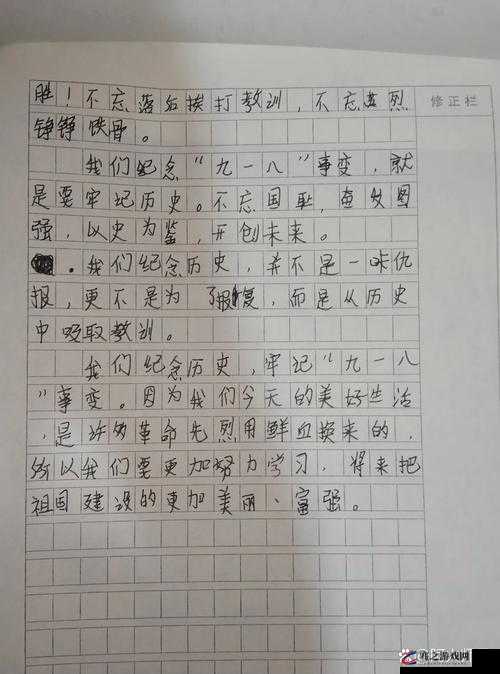 修正栏
胜！不忘落后挨打教训，不忘英烈
铮铮铁骨。
我们纪念“九一八”事变，就
是要牢记历史。不忘国耻，奋发图
强，以史为鉴，开创未来。
我们纪念历史，并不是一味仇
报，更不是为了报复，而是从历史
中吸取教训。
我们纪念历史，牢记“九一八
”事变。因为我们今天的美好生活
，是许多革命先烈用鲜血换来的，
所以我们要更加努力学习，将来把
祖国建设的更加美丽、富强。
寒之游戏网